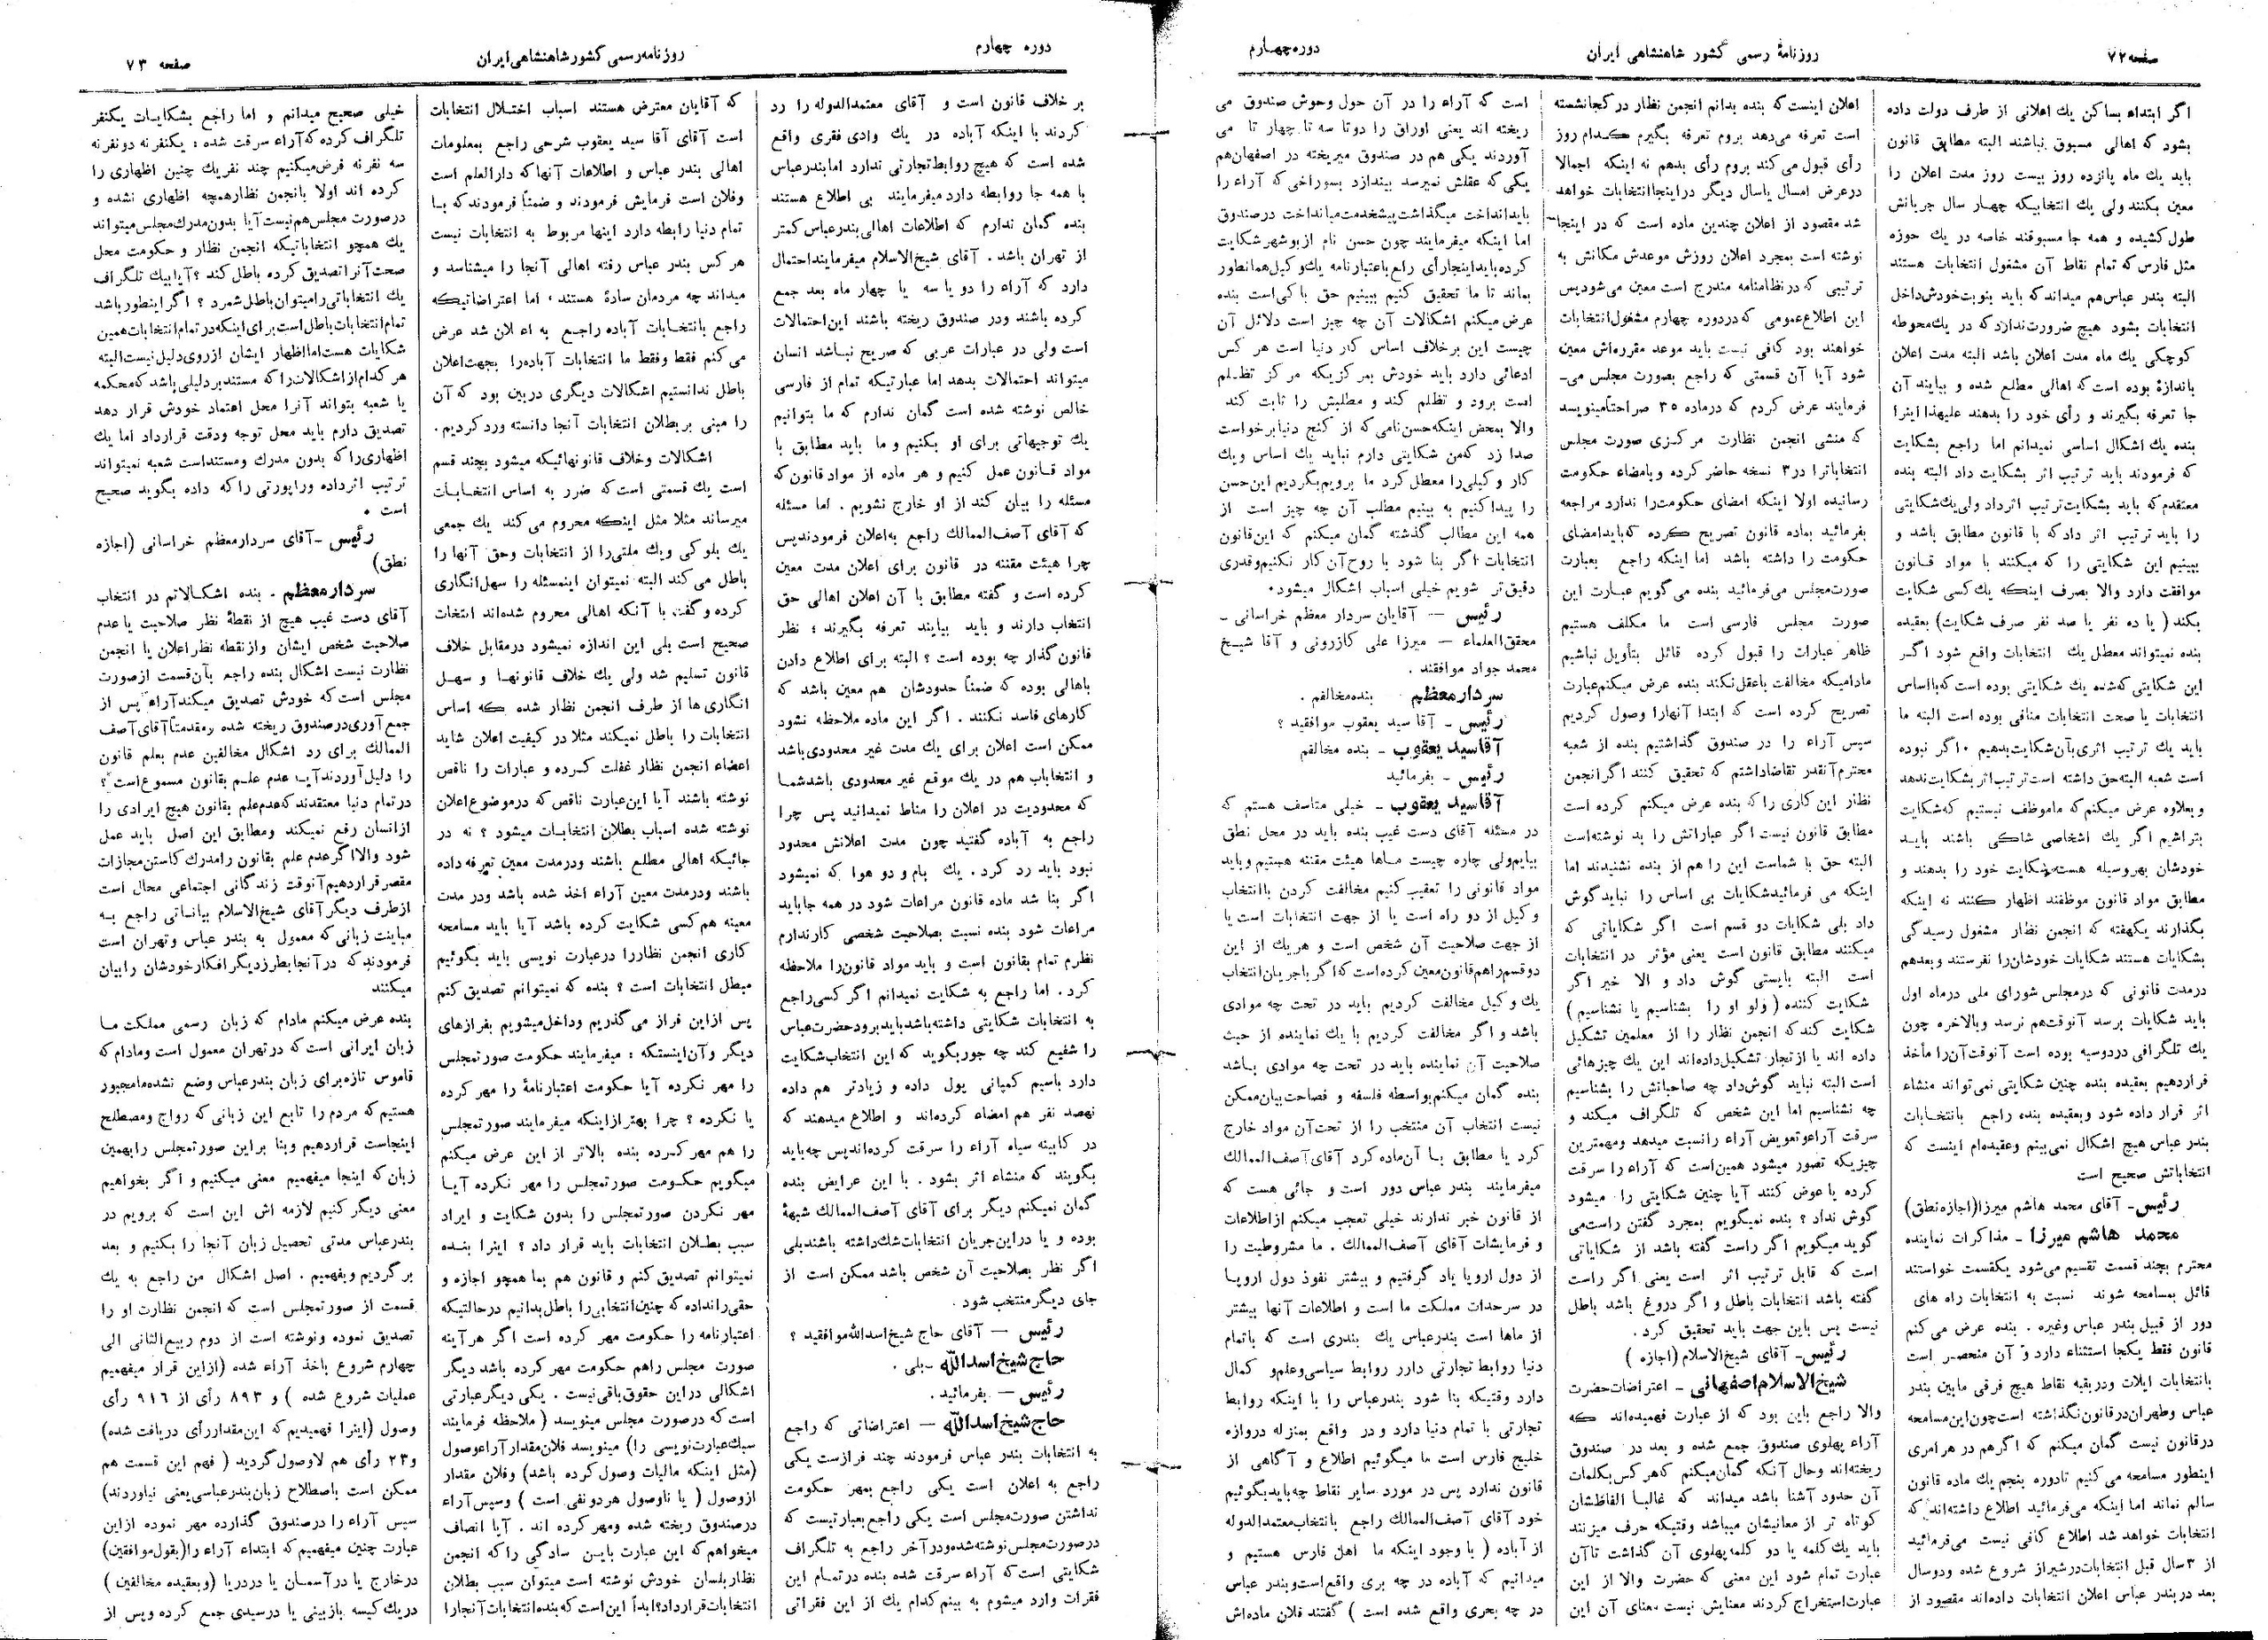 صفحه ۷۲
روزنامهٔ رسمی کشور شاهنشاهی ایران
دوره چهارم
اگر ابتداء بساکن یك اعلانی از طرف دولت داده
بشود که اهالی مسبوق نباشند البته مطابق قانون
باید یك ماه پانزده روز بیست روز مدت اعلان را
معین بکنند ولی یك انتخابیکه چهار سال جریانش
طول کشیده و همه جا مسبوقند خاصه در یك حوزه
مثل فارس که تمام نقاط آن مشغول انتخابات هستند
البته بندر عباس هم میداند که باید بنوبت خودش داخل
انتخابات بشود هیچ ضرورت ندارد که در یك محوطه
کوچکی یك ماه مدت اعلان باشد البته مدت اعلان
باندازهٔ بوده است که اهالی مطلع شده و بیایند آن
جا تعرفه بگیرند و رأی خود را بدهند علیهذا اینرا
بنده یك اشکال اساسی نمیدانم اما راجع بشکایت
که فرمودند باید ترتیب اثر بشکایت داد البته بنده
معتقدم که باید بشکایت ترتیب اثر داد ولی یك شکایتی
را باید ترتیب اثر داد که با قانون مطابق باشد و
ببینیم این شکایتی را که میکنند با مواد قانون
موافقت دارد والا بصرف اینکه یك کسی شکایت
بکند ( یا ده نفر یا صد نفر صرف شکایت) بعقیده
بنده نمیتواند معطل یك انتخابات واقع شود اگر
این شکایتی که شده یك شکایتی بوده است که با اساس
انتخابات یا صحت انتخابات منافی بوده است البته ما
باید یك ترتیب اثری بآن شکایت بدهیم . اگر نبوده
است شعبه البته حق داشته است ترتیب اثر بشکایت ندهد
و بعلاوه عرض میکنم که ما موظف نیستیم که شکایت
بتراشیم اگر یك اشخاصی شاکی باشند باید
خودشان بهر وسیله هست شکایت خود را بدهند و
مطابق مواد قانون موظفند اظهار کنند نه اینکه
بگذارند یکهفته که انجمن نظار مشغول رسیدگی
بشکایات هستند شکایات خودشان را نفرستند و بعد هم
در مدت قانونی که در مجلس شورای ملی در ماه اول
باید شکایات برسد آنوقت هم نرسد و بالاخره چون
یك تلگرافی در دوسیه بوده است آنوقت آن را مأخذ
قرار دهیم بعقیده بنده چنین شکایتی نمی‌تواند منشاء
اثر قرار داده شود و بعقیده بنده راجع بانتخابات
بندر عباس هیچ اشکال نمی‌بینم و عقیده‌ام اینست که
انتخاباتش صحیح است
رئیس ـ آقای محمد هاشم میرزا (اجازه نطق)
محمد هاشم میرزا ـ مذاکرات نماینده
محترم بچند قسمت تقسیم می‌شود یکقسمت خواستند
قائل بمسامحه شوند نسبت به انتخابات راه های
دور از قبیل بندر عباس وغیره . بنده عرض می‌کنم
قانون فقط یکجا استثناء دارد و آن منحصر است
بانتخابات ایلات و در بقیه نقاط هیچ فرقی مابین بندر
عباس و طهران در قانون نگذاشته است چون این مسامحه
در قانون نیست گمان میکنم که اگر هم در هر امری
اینطور مسامحه می‌کنیم تا دوره پنجم یك ماده قانون
سالم نماند اما اینکه می‌فرمائید اطلاع داشته‌اند که
انتخابات خواهد شد اطلاع کافی نیست می‌فرمائید
از ۳ سال قبل انتخابات در شیراز شروع شده و دو سال
بعد در بندر عباس اعلان انتخابات داده‌اند مقصود از
اعلان اینست که بنده بدانم انجمن نظار در کجا نشسته
است تعرفه می‌دهد بروم تعرفه بگیرم کدام روز
رأی قبول می‌کند بروم رأی بدهم نه اینکه اجمالا
در عرض امسال یا سال دیگر در اینجا انتخابات خواهد
شد مقصود از اعلان چندین ماده است که در اینجا
نوشته است بمجرد اعلان روزش موعدش مکانش به
ترتیبی که در نظامنامه مندرج است معین می‌شود پس
این اطلاع عمومی که در دوره چهارم مشغول انتخابات
خواهند بود کافی نیست باید موعد مقرره‌اش معین
شود آیا آن قسمتی که راجع بصورت مجلس می‌ـ
فرمایند عرض کردم که در ماده ۳۵ صراحتاً مینویسد
که منشی انجمن نظارت مرکزی صورت مجلس
انتخابات را در ۳ نسخه حاضر کرده و بامضاء حکومت
رسانیده اولا اینکه امضای حکومت را ندارد مراجعه
بفرمائید بماده قانون تصریح کرده که باید امضای
حکومت را داشته باشد اما اینکه راجع بعبارت
صورت مجلس می‌فرمائید بنده می گویم عبارت این
صورت مجلس فارسی است ما مکلف هستیم
ظاهر عبارات را قبول کرده قائل بتأویل نباشیم
مادامیکه مخالفت با عقل نکند بنده عرض میکنم عبارت
تصریح کرده است که ابتدا آنها را وصول کردیم
سپس آراء را در صندوق گذاشتیم بنده از شعبه
محترم آنقدر تقاضا داشتم که تحقیق کنند اگر انجمن
نظار این کاری را که بنده عرض میکنم کرده است
مطابق قانون نیست اگر عباراتش را بد نوشته است
البته حق با شماست این را هم از بنده نشنیدند اما
اینکه می فرمائید شکایات بی اساس را نباید گوش
داد بلی شکایات دو قسم است اگر شکایاتی که
میکنند مطابق قانون است یعنی مؤثر در انتخابات
است البته بایستی گوش داد و الا خیر اگر
شکایت کننده ( ولو او را بشناسیم یا نشناسیم )
شکایت کند که انجمن نظار را از معلمین تشکیل
داده اند یا از تجار تشکیل داده‌اند این یك چیزهائی
است البته نباید گوش داد چه صاحبانش را بشناسیم
چه نشناسیم اما این شخص که تلگراف میکند و
سرقت آراء و تعویض آراء را نسبت میدهد و مهمترین
چیزیکه تصور میشود همین است که آراء را سرقت
کرده یا عوض کنند آیا چنین شکایتی را میشود
گوش نداد ؟ بنده نمیگویم بمجرد گفتن راست می
گوید میگویم اگر راست گفته باشد از شکایاتی
است که قابل ترتیب اثر است یعنی اگر راست
گفته باشد انتخابات باطل و اگر دروغ باشد باطل
نیست پس باین جهت باید تحقیق کرد .
رئیس ـ آقای شیخ‌الاسلام (اجازه )
شیخ الاسلام اصفهانی ـ اعتراضات حضرت
والا راجع باین بود که از عبارت فهمیده‌اند که
آراء پهلوی صندوق جمع شده و بعد در صندوق
ریخته‌اند و حال آنکه گمان میکنم که هر کس بکلمات
آن حدود آشنا باشد میداند که غالباً الفاظشان
کوتاه تر از معانیشان میباشد وقتیکه حرف میزنند
باید یك کلمه یا دو کلمه پهلوی آن گذاشت تا آن
عبارت تمام شود این معنی که حضرت والا از این
عبارت استخراج کردند معنایش نیست معنای آن این
است که آراء را در آن حول وحوش صندوق می
ریخته اند یعنی اوراق را دوتا سه تا چهار تا می
آوردند یکی هم در صندوق میریخته در اصفهان هم
یکی که عقلش نمیرسد بیندازد بسوراخی که آراء را
باید انداخت میگذاشت پیشخدمت میانداخت در صندوق
اما اینکه میفرمایند چون حسن نام از بوشهر شکایت
کرده باید اینجا رأی راجع باعتبارنامه یك وکیل همانطور
بماند تا ما تحقیق کنیم ببینیم حق با کی است بنده
عرض میکنم اشکالات آن چه چیز است دلائل آن
چیست این بر خلاف اساس کار دنیا است هر کس
ادعائی دارد باید خودش بمرکزیکه مرکز تظلم
است برود و تظلم کند و مطلبش را ثابت کند
والا بمحض اینکه حسن نامی که از کنج دنیا برخواست
صدا زد که من شکایتی دارم نباید یك اساس و یك
کار و کیلی را معطل کرد ما برویم بگردیم این حسن
را پیدا کنیم به بینیم مطلب آن چه چیز است از
همه این مطالب گذشته گمان میکنم که این قانون
انتخابات اگر بنا شود با روح آن کار نکنیم و قدری
دقیق‌تر شویم خیلی اسباب اشکال میشود.
رئیس — آقایان سردار معظم خراسانی ـ
محقق‌العلماء — میرزا علی کازرونی و آقا شیخ
محمد جواد موافقند .
سردار معظم بنده مخالفم .
رئیس ـ آقا سید یعقوب موافقید ؟
آقا سید یعقوب ـ بنده مخالفم
رئیس ـ بفرمائید
آقا سید یعقوب ـ خیلی متاسف هستم که
در مسئله آقای دست غیب بنده باید در محل نطق
بیایم ولی چاره چیست ماها هیئت مقننه هستیم و باید
مواد قانونی را تعقیب کنیم مخالفت کردن با انتخاب
وکیل از دو راه است یا از جهت انتخابات است یا
از جهت صلاحیت آن شخص است و هر یك از این
دو قسم را هم قانون معین کرده است که اگر با جریان انتخاب
یك وکیل مخالفت کردیم باید در تحت چه موادی
باشد و اگر مخالفت کردیم با یك نماینده از حیث
صلاحیت آن نماینده باید در تحت چه موادی باشد
بنده گمان میکنم بواسطه فلسفه و فصاحت بیان ممکن
نیست انتخاب آن منتخب را از تحت آن مواد خارج
کرد یا مطابق با آن ماده کرد آقای آصف‌الممالك
میفرمایند بندر عباس دور است و جائی هست که
از قانون خبر ندارند خیلی تعجب میکنم از اطلاعات
و فرمایشات آقای آصف‌الممالك . ما مشروطیت را
از دول اروپا یاد گرفتیم و بیشتر نفوذ دول اروپا
در سرحدات مملکت ما است و اطلاعات آنها بیشتر
از ماها است بندر عباس یك بندری است که با تمام
دنیا روابط تجارتی دارد روابط سیاسی و علم و کمال
دارد وقتیکه بنا شود بندر عباس را با اینکه روابط
تجارتی با تمام دنیا دارد و در واقع بمنزله دروازه
خلیج فارس است ما میگوئیم اطلاع و آگاهی از
قانون ندارد پس در مورد سایر نقاط چه باید بگوئیم
خود آقای آصف‌الممالك راجع بانتخاب معتمدالدوله
از آباده ( با وجود اینکه ما اهل فارس هستیم و
میدانیم که آباده در چه بری واقع است و بندر عباس
در چه بحری واقع شده است ) گفتند فلان ماده‌اش
دوره چهارم
روزنامه رسمی کشور شاهنشاهی ایران
صفحه ۷۳
بر خلاف قانون است و آقای معتمدالدوله را رد
کردند با اینکه آباده در یك وادی فقری واقع
شده است که هیچ روابط تجارتی ندارد اما بندر عباس
با همه جا روابطه دارد میفرمایند بی اطلاع هستند
بنده گمان ندارم که اطلاعات اهالی بندر عباس کمتر
از تهران باشد . آقای شیخ‌الاسلام میفرمایند احتمال
دارد که آراء را دو یا سه یا چهار ماه بعد جمع
کرده باشند و در صندوق ریخته باشند این احتمالات
است ولی در عبارات عربی که صریح نباشد انسان
میتواند احتمالات بدهد اما عبارتیکه تمام از فارسی
خالص نوشته شده است گمان ندارم که ما بتوانیم
یك توجیهاتی برای او بکنیم و ما باید مطابق با
مواد قانون عمل کنیم و هر ماده از مواد قانون که
مسئله را بیان کند از او خارج نشویم . اما مسئله
که آقای آصف‌الممالك راجع به‌اعلان فرمودند پس
چرا هیئت مقننه در قانون برای اعلان مدت معین
کرده است و گفته مطابق با آن اعلان اهالی حق
انتخاب دارند و باید بیایند تعرفه بگیرند ؛ نظر
قانون گذار چه بوده است ؟ البته برای اطلاع دادن
باهالی بوده که ضمناً حدودشان هم معین باشد که
کارهای فاسد نکنند . اگر این ماده ملاحظه نشود
ممکن است اعلان برای یك مدت غیر محدودی باشد
و انتخاباب هم در یك موقع غیر محدودی باشد شما
که محدودیت در اعلان را مناط نمیدانید پس چرا
راجع به آباده گفتید چون مدت اعلانش محدود
نبود باید رد کرد . یك بام و دو هوا که نمیشود
اگر بنا شد ماده قانون مراعات شود در همه جا باید
مراعات شود بنده نسبت بصلاحیت شخصی کار ندارم
نظرم تمام بقانون است و باید مواد قانون را ملاحظه
کرد . اما راجع به شکایت نمیدانم اگر کسی راجع
به انتخابات شکایتی داشته باشد باید برود حضرت عباس
را شفیع کند چه جور بگوید که این انتخاب شکایت
دارد باسیم کمپانی پول داده و زیادتر هم داده
نهصد نفر هم امضاء کرده‌اند و اطلاع میدهند که
در کابینه سیاه آراء را سرقت کرده‌اند پس چه باید
بگویند که منشاء اثر بشود . با این عرایض بنده
گمان نمیکنم دیگر برای آقای آصف‌الممالك شبههٔ
بوده و یا در این جریان انتخابات شك داشته باشند بلی
اگر نظر بصلاحیت آن شخص باشد ممکن است از
جای دیگر منتخب شود .
رئیس — آقای حاج شیخ اسدالله موافقید ؟
حاج شیخ اسدالله ـ بلی .
رئیس — بفرمائید .
حاج شیخ اسدالله — اعتراضاتی که راجع
به انتخابات بندر عباس فرمودند چند فراز است یکی
راجع به اعلان است یکی راجع بمهر حکومت
نداشتن صورت مجلس است یکی راجع بعبارتیست که
در صورت مجلس نوشته شده و در آخر راجع به تلگراف
شکایتی است که آراء سرقت شده بنده در تمام این
فقرات وارد میشوم به بینم کدام یك از این فقراتی
که آقایان معترض هستند اسباب اختلال انتخابات
است آقای آقا سید یعقوب شرحی راجع بمعلومات
اهالی بندر عباس و اطلاعات آنها که دارالعلم است
وفلان است فرمایش فرمودند و ضمناً فرمودند که با
تمام دنیا رابطه دارد اینها مربوط به انتخابات نیست
هر کس بندر عباس رفته اهالی آنجا را میشناسد و
میداند چه مردمان سادهٔ هستند ، اما اعتراضاتیکه
راجع بانتخابات آباده راجع به اعلان شد عرض
می کنم فقط وفقط ما انتخابات آباده را بجهت اعلان
باطل ندانستیم اشکالات دیگری در بین بود که آن
را مبنی بر بطلان انتخابات آنجا دانسته ورد کردیم .
اشکالات وخلاف قانونهائیکه میشود بچند قسم
است یك قسمتی است که ضرر به اساس انتخابات
میرساند مثلا مثل اینکه محروم می کند یك جمعی
یك بلوکی ویك ملتی را از انتخابات وحق آنها را
باطل می کند البته نمیتوان اینمسئله را سهل‌انگاری
کرده و گفت با آنکه اهالی محروم شده‌اند انتخات
صحیح است بلی این اندازه نمیشود در مقابل خلاف
قانون تسلیم شد ولی یك خلاف قانونها و سهل
انگاری ها از طرف انجمن نظار شده که اساس
انتخابات را باطل نمیکند مثلا در کیفیت اعلان شاید
اعضاء انجمن نظار غفلت کرده و عبارات را ناقص
نوشته باشند آیا این عبارت ناقص که در موضوع اعلان
نوشته شده اسباب بطلان انتخابات میشود ؟ نه در
جائیکه اهالی مطلع باشند و در مدت معین تعرفه داده
باشند و در مدت معین آراء اخذ شده باشد و در مدت
معینه هم کسی شکایت کرده باشد آیا باید مسامحه
کاری انجمن نظار را در عبارت نویسی باید بگوئیم
مبطل انتخابات است ؟ بنده که نمیتوانم تصدیق کنم
پس از این فراز می گذریم و داخل میشویم بفرازهای
دیگر و آن اینستکه : میفرمایند حکومت صورتمجلس
را مهر نکرده آیا حکومت اعتبارنامهٔ را مهر کرده
یا نکرده ؟ چرا بهتر از اینکه میفرمایند صورتمجلس
را هم مهر کرده بنده بالاتر از این عرض میکنم
میگویم حکومت صورتمجلس را مهر نکرده آیا
مهر نکردن صورتمجلس را بدون شکایت و ایراد
سبب بطلان انتخابات باید قرار داد ؟ اینرا بنده
نمیتوانم تصدیق کنم و قانون هم بما همچو اجازه و
حقی را نداده که چنین انتخابی را باطل بدانیم در حالتیکه
اعتبارنامه را حکومت مهر کرده است اگر هر آینه
صورت مجلس را هم حکومت مهر کرده باشد دیگر
اشکالی در این حقوق باقی نیست . یکی دیگر عبارتی
است که در صورت مجلس مینویسد ( ملاحظه فرمایند
سبك عبارت نویسی را) مینویسد فلان مقدار آراء وصول
(مثل اینکه مالیات وصول کرده باشد) وفلان مقدار
از وصول ( یا ناوصول هر دو نفی است ) وسپس آراء
در صندوق ریخته شده ومهر کرده اند . آیا انصاف
میخواهم که این عبارت باین سادگی را که انجمن
نظار بلسان خودش نوشته است میتوان سبب بطلان
انتخابات قرار داد؟ ابداً این است که بنده انتخابات آنجا را
خیلی صحیح میدانم و اما راجع بشکایات یکنفر
تلگراف کرده که آراء سرقت شده ؛ یکنفر نه دو نفر نه
سه نفر نه فرض میکنیم چند نفر یك چنین اظهاری را
کرده اند اولا بانجمن نظار همچه اظهاری نشده و
در صورت مجلس هم نیست آیا بدون مدرك مجلس میتواند
یك همچو انتخاباتیکه انجمن نظار و حکومت محل
صحت آنرا تصدیق کرده باطل کند ؟ آیا بیك تلگراف
یك انتخاباتی را میتوان باطل شمرد ؟ اگر اینطور باشد
تمام انتخابات باطل است برای اینکه در تمام انتخابات همین
شکایات هست اما اظهار ایشان از روی دلیل نیست البته
هر کدام از اشکالات را که مستند بر دلیلی باشد که محکمه
یا شعبه بتواند آنرا محل اعتماد خودش قرار دهد
تصدیق دارم باید محل توجه ودقت قرار داد اما یك
اظهاری را که بدون مدرك ومستند است شعبه نمیتواند
ترتیب اثر داده وراپورتی را که داده بگوید صحیح
است .
رئیس ـ آقای سردار معظم خراسانی (اجازه
نطق)
سردار معظم ـ بنده اشکالاتم در انتخاب
آقای دست غیب هیچ از نقطهٔ نظر صلاحیت یا عدم
صلاحیت شخص ایشان و از نقطه نظر اعلان یا انجمن
نظارت نیست اشکال بنده راجع بآن قسمت از صورت
مجلس است که خودش تصدیق میکند آراء پس از
جمع آوری در صندوق ریخته شده ومقدمتاً آقای آصف
الممالك برای رد اشکال مخالفین عدم بعلم قانون
را دلیل آوردند آیا عدم علم بقانون مسموع است ؟
در تمام دنیا معتقدند که عدم علم بقانون هیچ ایرادی را
از انسان رفع نمیکند ومطابق این اصل باید عمل
شود والا اگر عدم علم بقانون را مدرك کاستن مجازات
مقصر قرار دهیم آنوقت زندگانی اجتماعی محال است
از طرف دیگر آقای شیخ‌الاسلام بیاناتی راجع به
مباینت زبانی که معمول به بندر عباس وتهران است
فرمودند که در آنجا بطرز دیگر افکار خودشان را بیان
میکنند
بنده عرض میکنم مادام که زبان رسمی مملکت ما
زبان ایرانی است که در تهران معمول است ومادام که
قاموس تازه برای زبان بندر عباس وضع نشده ما مجبور
هستیم که مردم را تابع این زبانی که رواج ومصطلح
اینجاست قرار دهیم وبنا بر این صورتمجلس را بهمین
زبان که اینجا میفهمیم معنی میکنیم و اگر بخواهیم
معنی دیگر کنیم لازمه اش این است که برویم در
بندر عباس مدتی تحصیل زبان آنجا را بکنیم و بعد
بر گردیم وبفهمیم . اصل اشکال من راجع به یك
قسمت از صورتمجلس است که انجمن نظارت او را
تصدیق نموده ونوشته است از دوم ربیع‌الثانی الی
چهارم شروع باخذ آراء شده (از این قرار میفهمیم
عملیات شروع شده ) و ۸۹۳ رأی از ۹۱۶ رأی
وصول (اینرا فهمیدیم که این مقدار رأی دریافت شده)
و۲۳ رأی هم لاوصول گردید ( فهم این قسمت هم
ممکن است باصطلاح زبان بندر عباسی یعنی نیاوردند)
سپس آراء را در صندوق گذارده مهر نموده از این
عبارت چنین میفهمیم که ابتداء آراء را (بقول موافقین)
در خارج یا در آسمان یا در دریا (وبعقیده مخالفین )
در یك کیسه بازبینی یا در سبدی جمع کرده وپس از